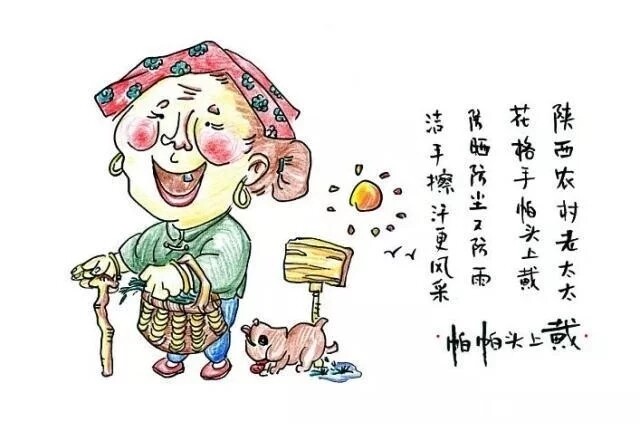 陕西农村老太太
花格手帕头上戴
防晒防尘又防雨
洁手擦汗更风采
·帕帕头上戴·